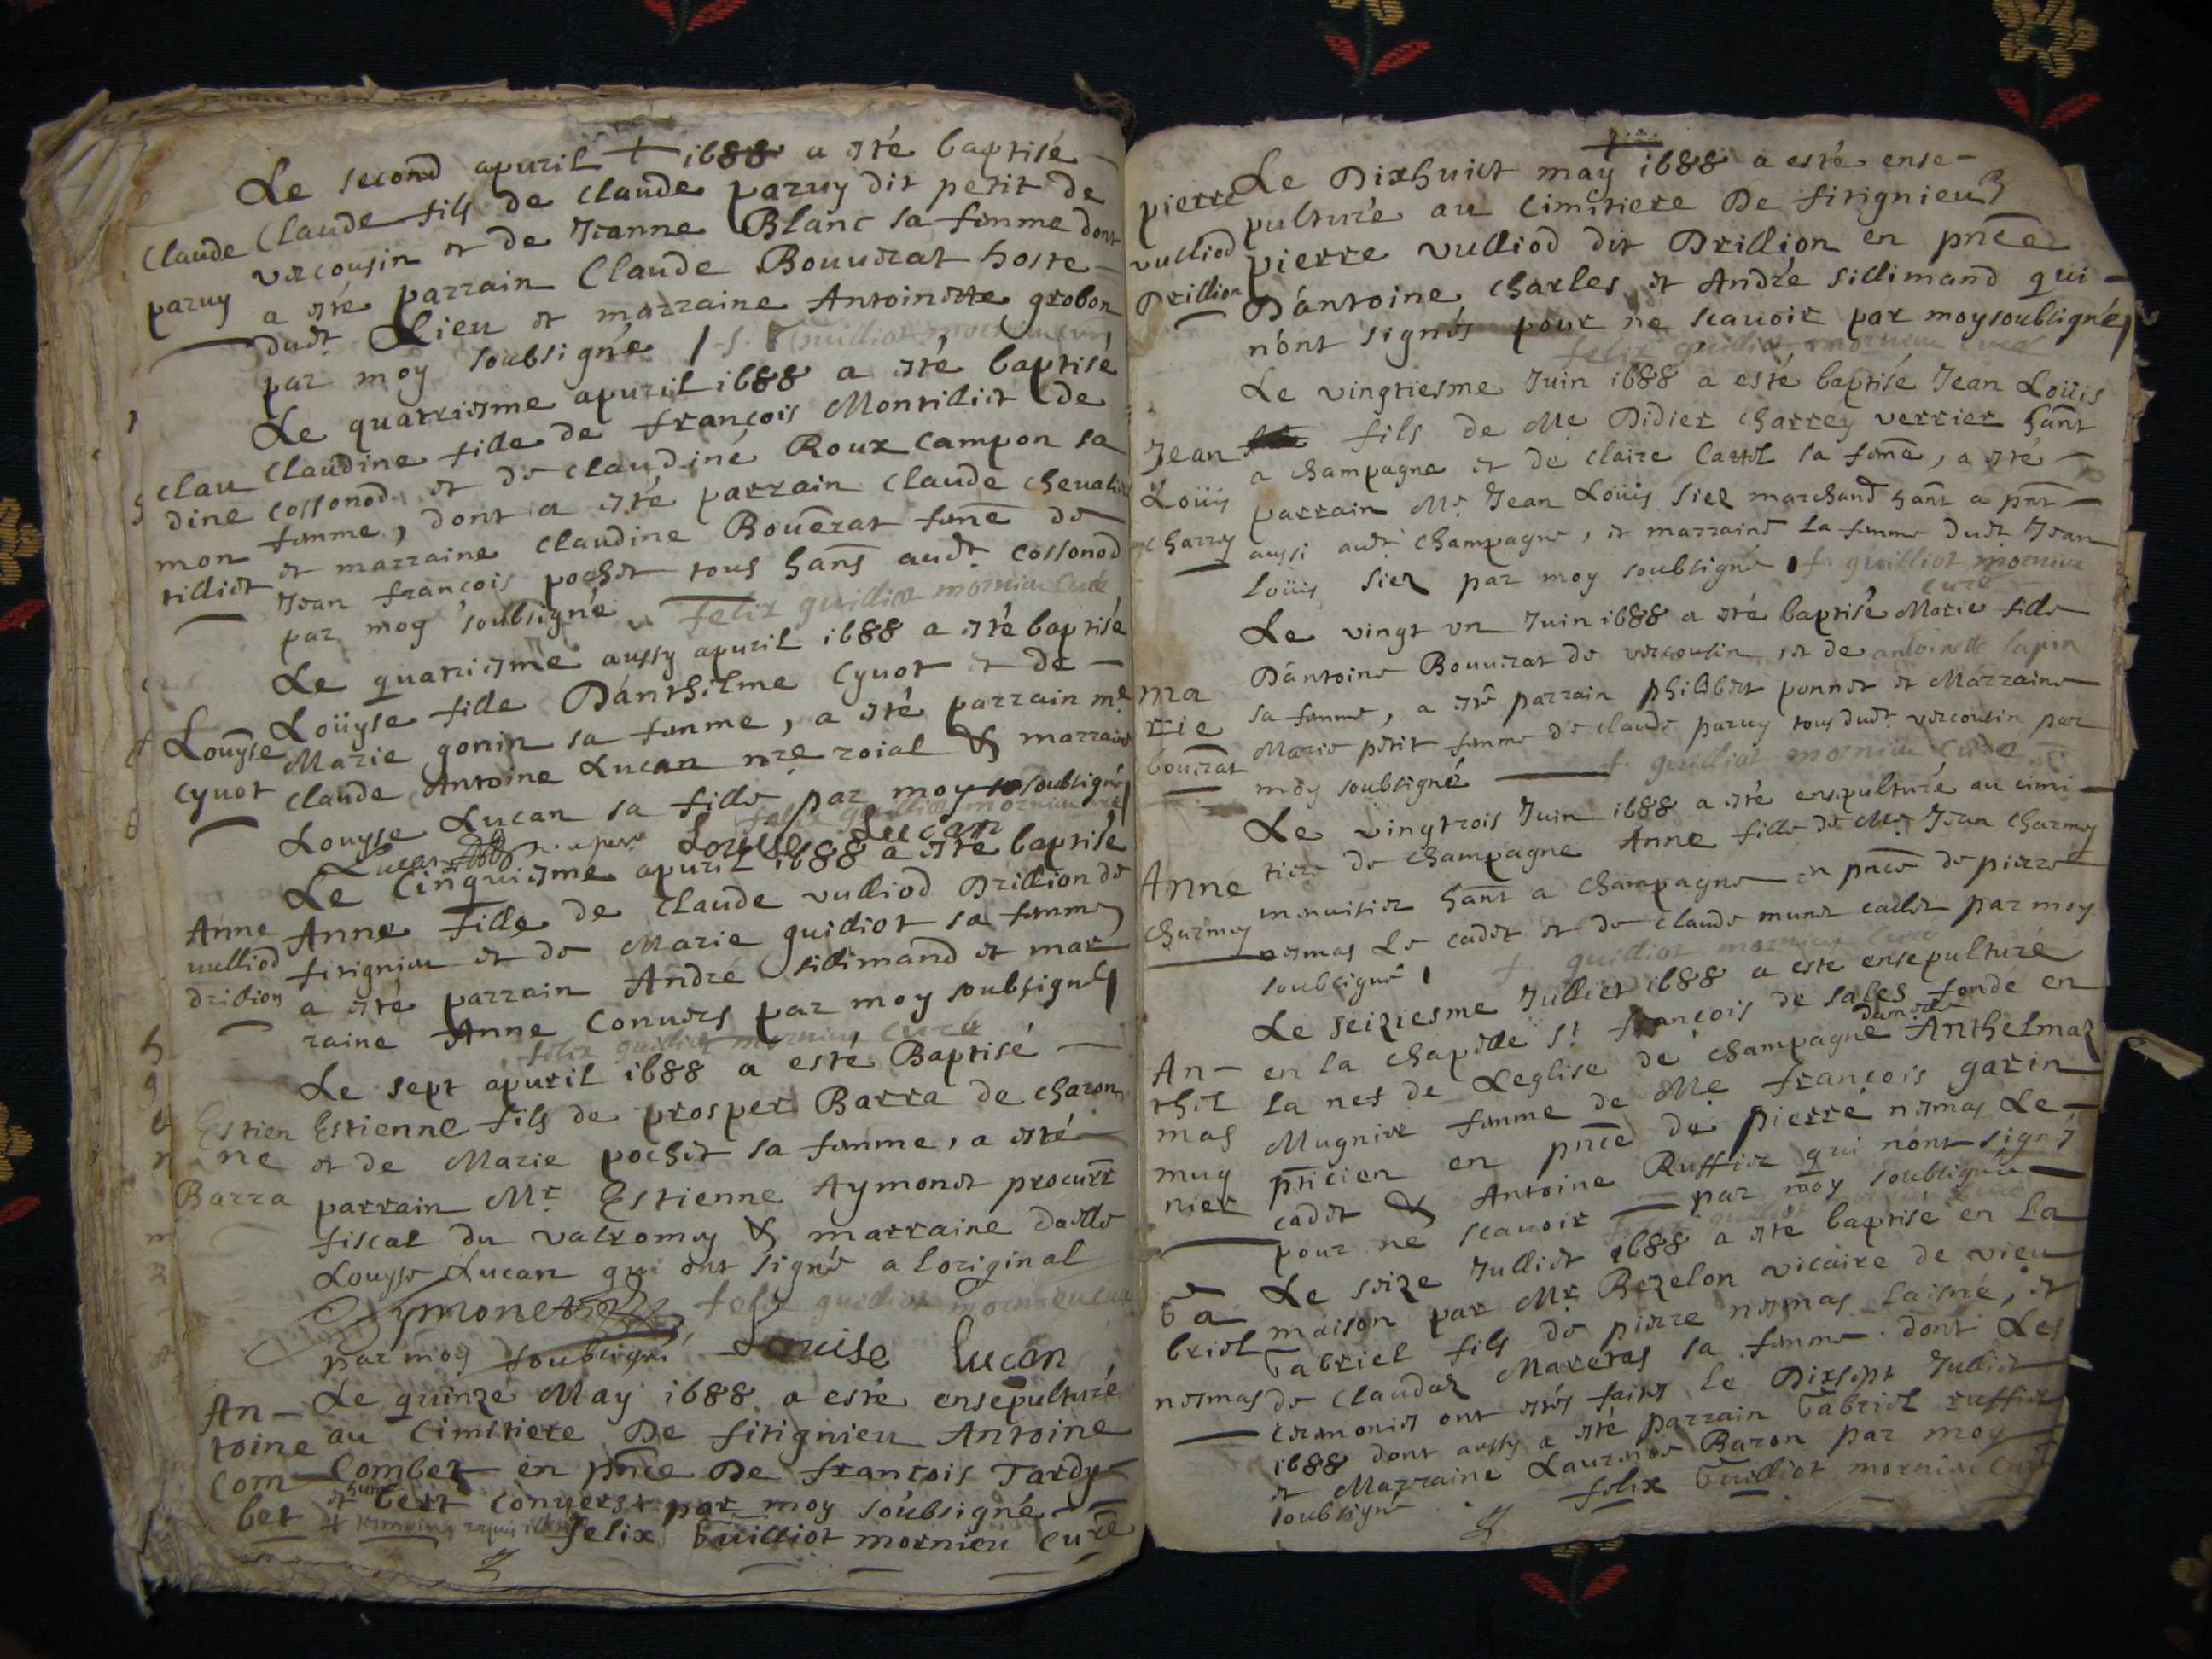 Le second apuril 1688 a esté baptisé
Claude Claude fils de Claude paruy dit petit de
paruy vercousin et de Jeanne Blanc sa femme dont
a esté parrain Claude Bouuerat hoste
dudt Lieu et marraine Antoinette grobon
par moy soubsigné f. guilliot mornieu curé
Le quatriesme apuril 1688 a esté baptisé
Clau Claudine fille de françois Montilliet de
dine cossonod et de claudine Roux Campon sa
mon femme, dont a esté parrain Claude cheualier
tilliet et marraine Claudine Bouerat feme de
Jean françois pochet tous hans audt cossonod
par moy soubsigné felix guilliot mornieu Curé
Le quatriesme aussy apuril 1688 a esté baptisé
Louyse Loüyse fille D'anthelme Cyuot et de
Cyuot Marie gonin sa femme, a esté parrain me
Claude Antoine Lucan nre roial & marraine
Louyse Lucan sa fille par moy soubsigné
felix guilliot mornieu curé
Lucan Louise Lucan
Le Cinquiesme apuril 1688 a esté baptisé
Anne Anne fille de Claude vulliod Drillion de
uulliod fitignieu et de Marie guilliot sa femme
drillion a esté parrain André sillimand et mar
raine Anne Conuers par moy soubsigné
felix guilliot mornieu curé
Le sept apuril 1688 a esté Baptisé
Estien Estienne fils de prosper Barra de charon
ne et de Marie pochet sa femme, a esté
Barra parrain Mr Estienne Aymonet procurr
fiscal du valromey & marraine dalle
Louyse Lucan qui ont signé a loriginal
Aymonet felix guilliot mornieu curé
par moy soubsigné Louise Lucan
An- Le quinze May 1688 a esté ensepulturé
toine au Cimitiere De fitignieu Antoine
Com Combet en pnce De françois Tardy
bet et humbert Conuers par moy soubsigné
felix Guilliot mornieu curé
Le Dixhuict may 1688 a esté ense-
pierre pulturé au Cimitiere De fitignieu
vulliod pierre vulliod dit Drillion en pnce
Drillion D'antoine Charles et André sillimand qui
n'ont signés pour ne scauoir par moy soubsigné
felix guilliot mornieu curé
Le vingtiesme Juin 1688 a esté baptisé Jean Loüis
Jean fils de Me Didier Charrey verrier hant
Loüis a Champagne et de Claire Cattel sa feme, a esté
charrey parrain Mr Jean Loüis siel marchand hant a pnt
aussi audt Champagne, et marraine la femme dudt Jean
Loüis siel par moy soubsigné f. guilliot mornieu
curé
Le vingt vn Juin 1688 a esté baptisé Marie fille
D'antoine Bouuerat de vercousin et de antoinette lapin
ma sa femme, a esté parrain philibert ponnet et Marraine
rie Marie petit femme de Claude paruy tous dudt vercousin par
bouerat moy soubsigné f. guilliot mornieu Curé
Le vingtrois Juin 1688 a esté ensepulturé au cimi
Anne tiere de Champagne Anne fille de Me Jean Charmey
Charmey menuisier hant a Champagne en pnce de pierre
nesmas Le cadet et de Claude munet cadet par moy
soubsigné f. guilliot mornieu curé
Le seiziesme Julliet 1688 a este ensepulturé
An- en la Chapelle St françois de sales fondé en
thel la nef de Leglise de Champagne Anthelmaz
mas Mugnier femme de Me françois garin
mug pticien en pnce de pierre nesmas Le
nier cadet & Antoine Ruffier qui n'ont signé
pour ne scauoir par moy soubsigné
Le seize Julliet 1688 a esté baptisé en la
Ga maison par Mr Bezelon vicaire de vieu
briel Gabriel fils de pierre nesmas Laisné, et
nesmas de Claudaz Mareras sa femme dont Les
ceremonies ont estés faites le Dixsept Julliet
1688 dont aussy a esté parrain Gabriel ruffier
et Marraine Laurence Baron par moy
soubsigné felix Guilliot mornieu Curé